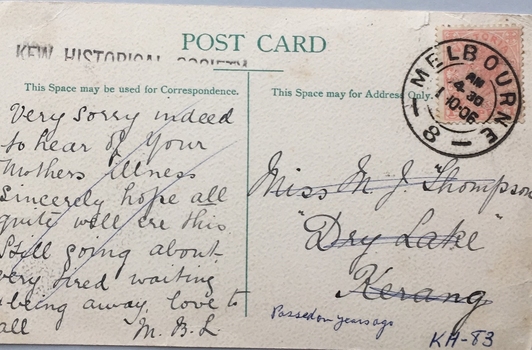 POST CARD
KEW HISTORICAL SOCIETY
This Space may be used for Correspondence.
This Space may for Address Only.
MELBOURNE
AM
4.30
1 10.06
8
Very sorry indeed
to hear of your
Mothers illness
Sincerely hope all
quite well ere this
Still going about
very tired waiting
being away, love to
all M.B.L.
Miss M J Thompson
"Dry Lake"
Kerang
Passed on years ago
KH-83